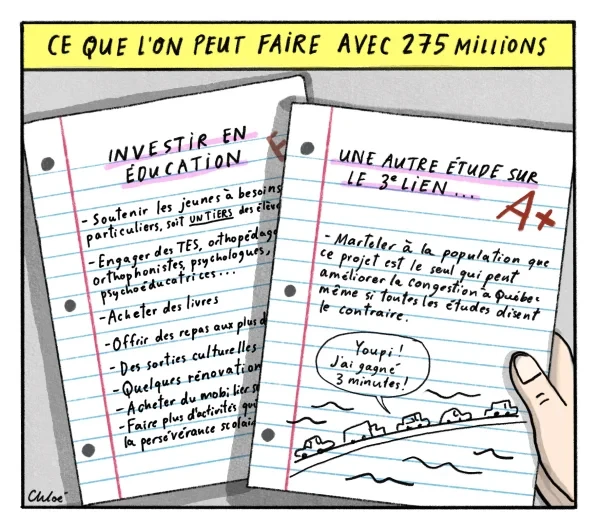 CE QUE L'ON PEUT FAIRE AVEC 275 MILLIONS
INVESTIR EN
ÉDUCATION
- Soutenir les jeunes à besoins
particuliers, soit UN TIERS des élève
- Engager des TES, orthopédago
orthophonistes, psychologues,
psychoéducatrices...
- Acheter des livres
- Offrir des repas aux plus d
- Des sorties culturelles
- Quelques rénovation
- Acheter du mobilier s
- Faire plus d'activités qui
la persévérance scolai
UNE AUTRE ÉTUDE SUR
LE 3e LIEN...
A+
- Marteler à la population que
ce projet est le seul qui peut
améliorer la congestion à Québec
même si toutes les études disent
le contraire.
Youpi!
J'ai gagné
3 minutes!
Chloé